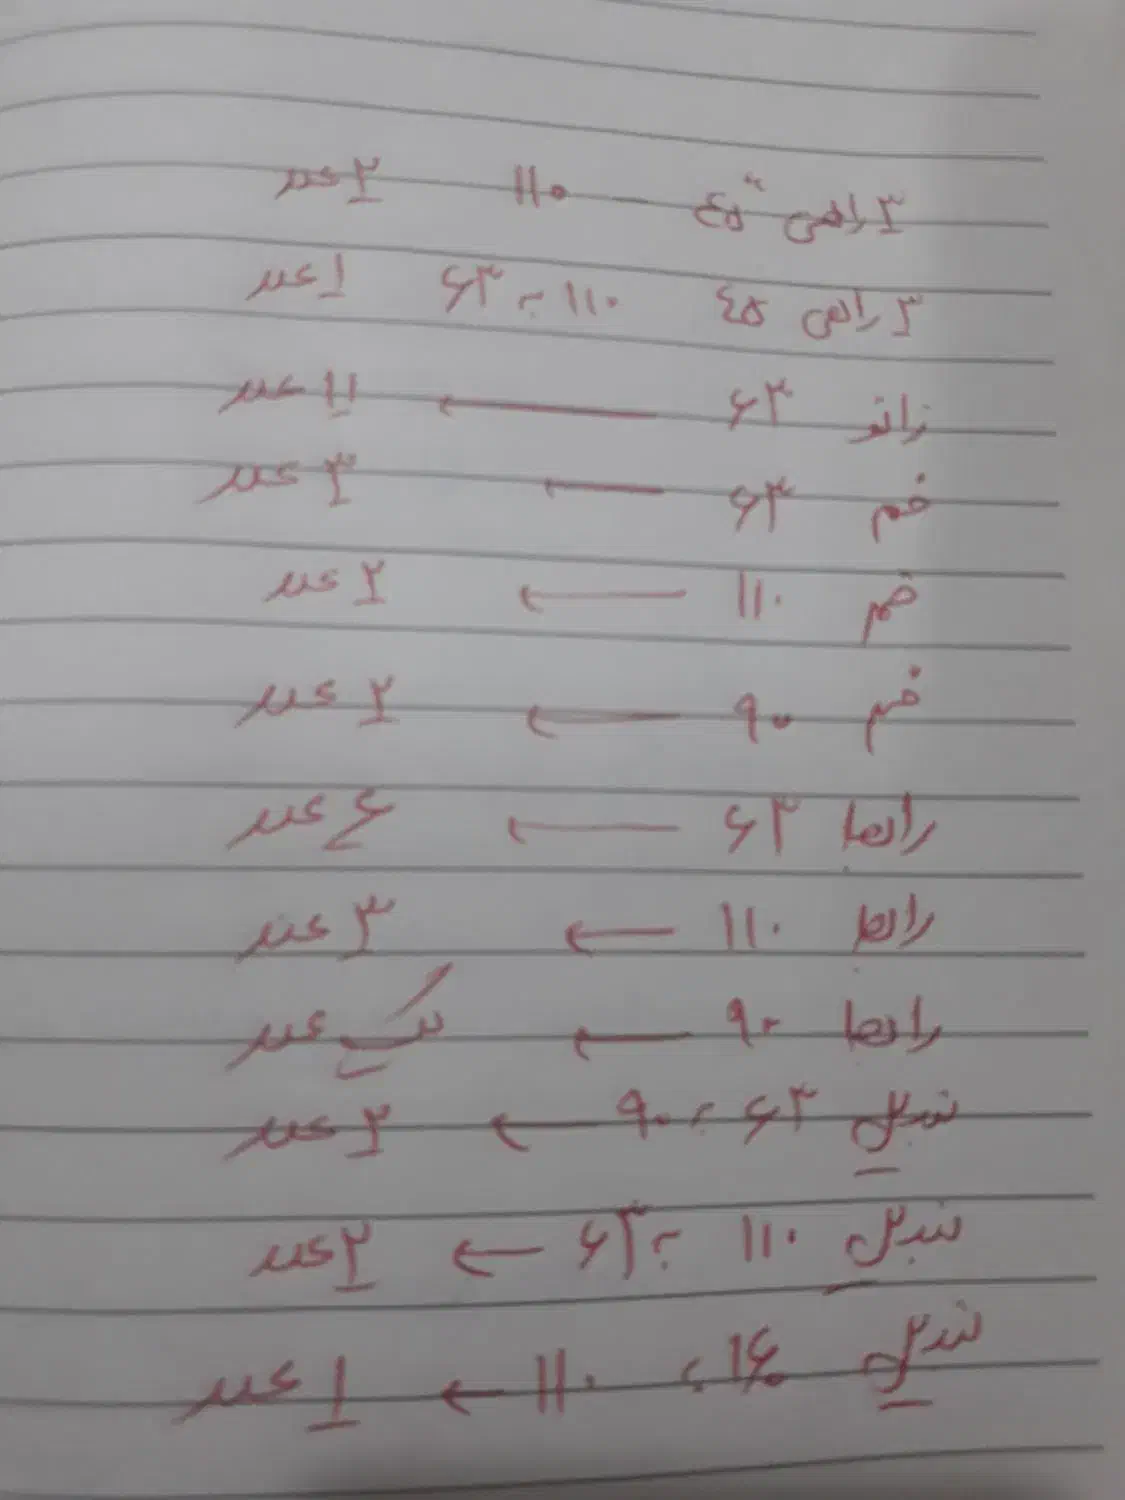 ۳ راهی ۴۵ ۱۱۰ ۲ عدد
۳ راهی ۴۵ ۱۱۰ به ۶۳ ۱ عدد
زانو ۶۳ ← ۱۱ عدد
خم ۶۳ ← ۳ عدد
خم ۱۱۰ ← ۲ عدد
خم ۹۰ ← ۲ عدد
رابط ۶۳ ← ۴ عدد
رابط ۱۱۰ ← ۳ عدد
رابط ۹۰ ← عدد
تبدیل ۶۳ به ۹۰ ← ۲ عدد
تبدیل ۱۱۰ به ۶۳ ← ۲ عدد
تبدیل ۱۶۰ به ۱۱۰ ← ۱ عدد